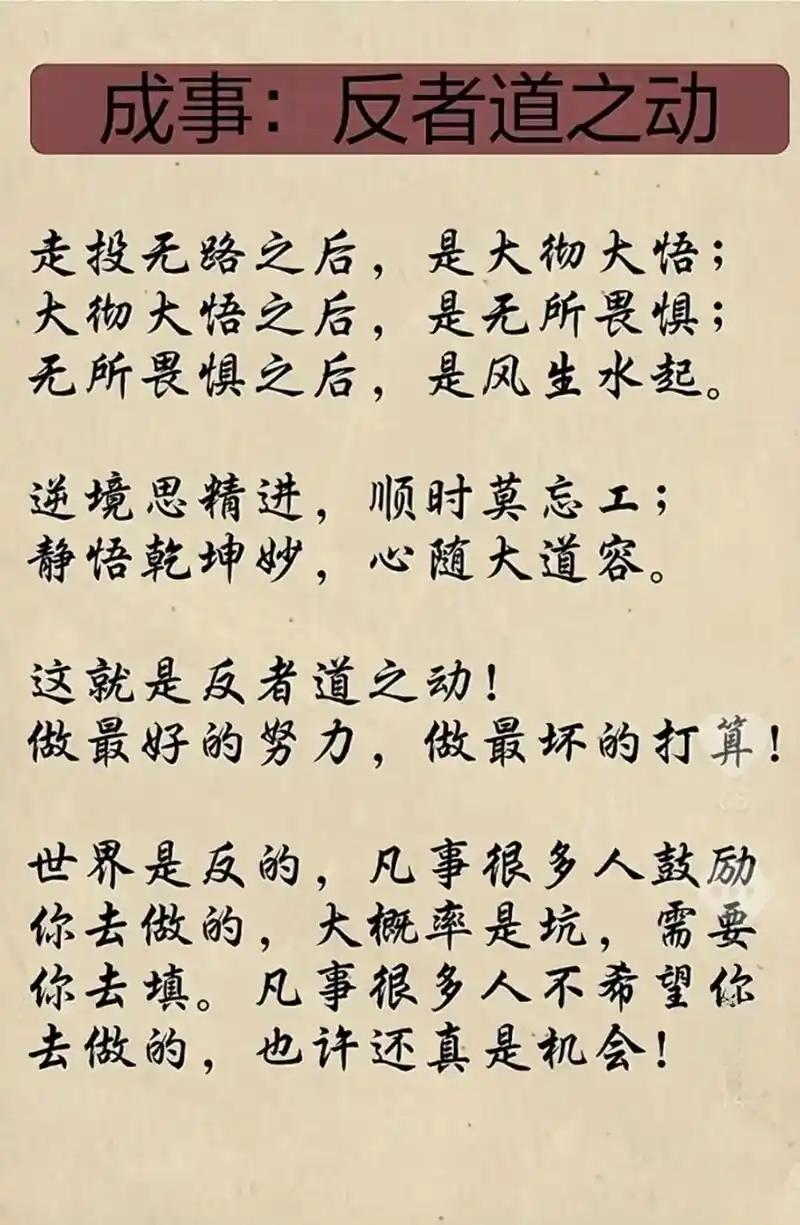 成事：反者道之动
走投无路之后，是大彻大悟；
大彻大悟之后，是无所畏惧；
无所畏惧之后，是风生水起。
逆境思精进，顺时莫忘工；
静悟乾坤妙，心随大道容。
这就是反者道之动！
做最好的努力，做最坏的打算！
世界是反的，凡事很多人鼓励
你去做的，大概率是坑，需要
你去填。凡事很多人不希望你
去做的，也许还真是机会！